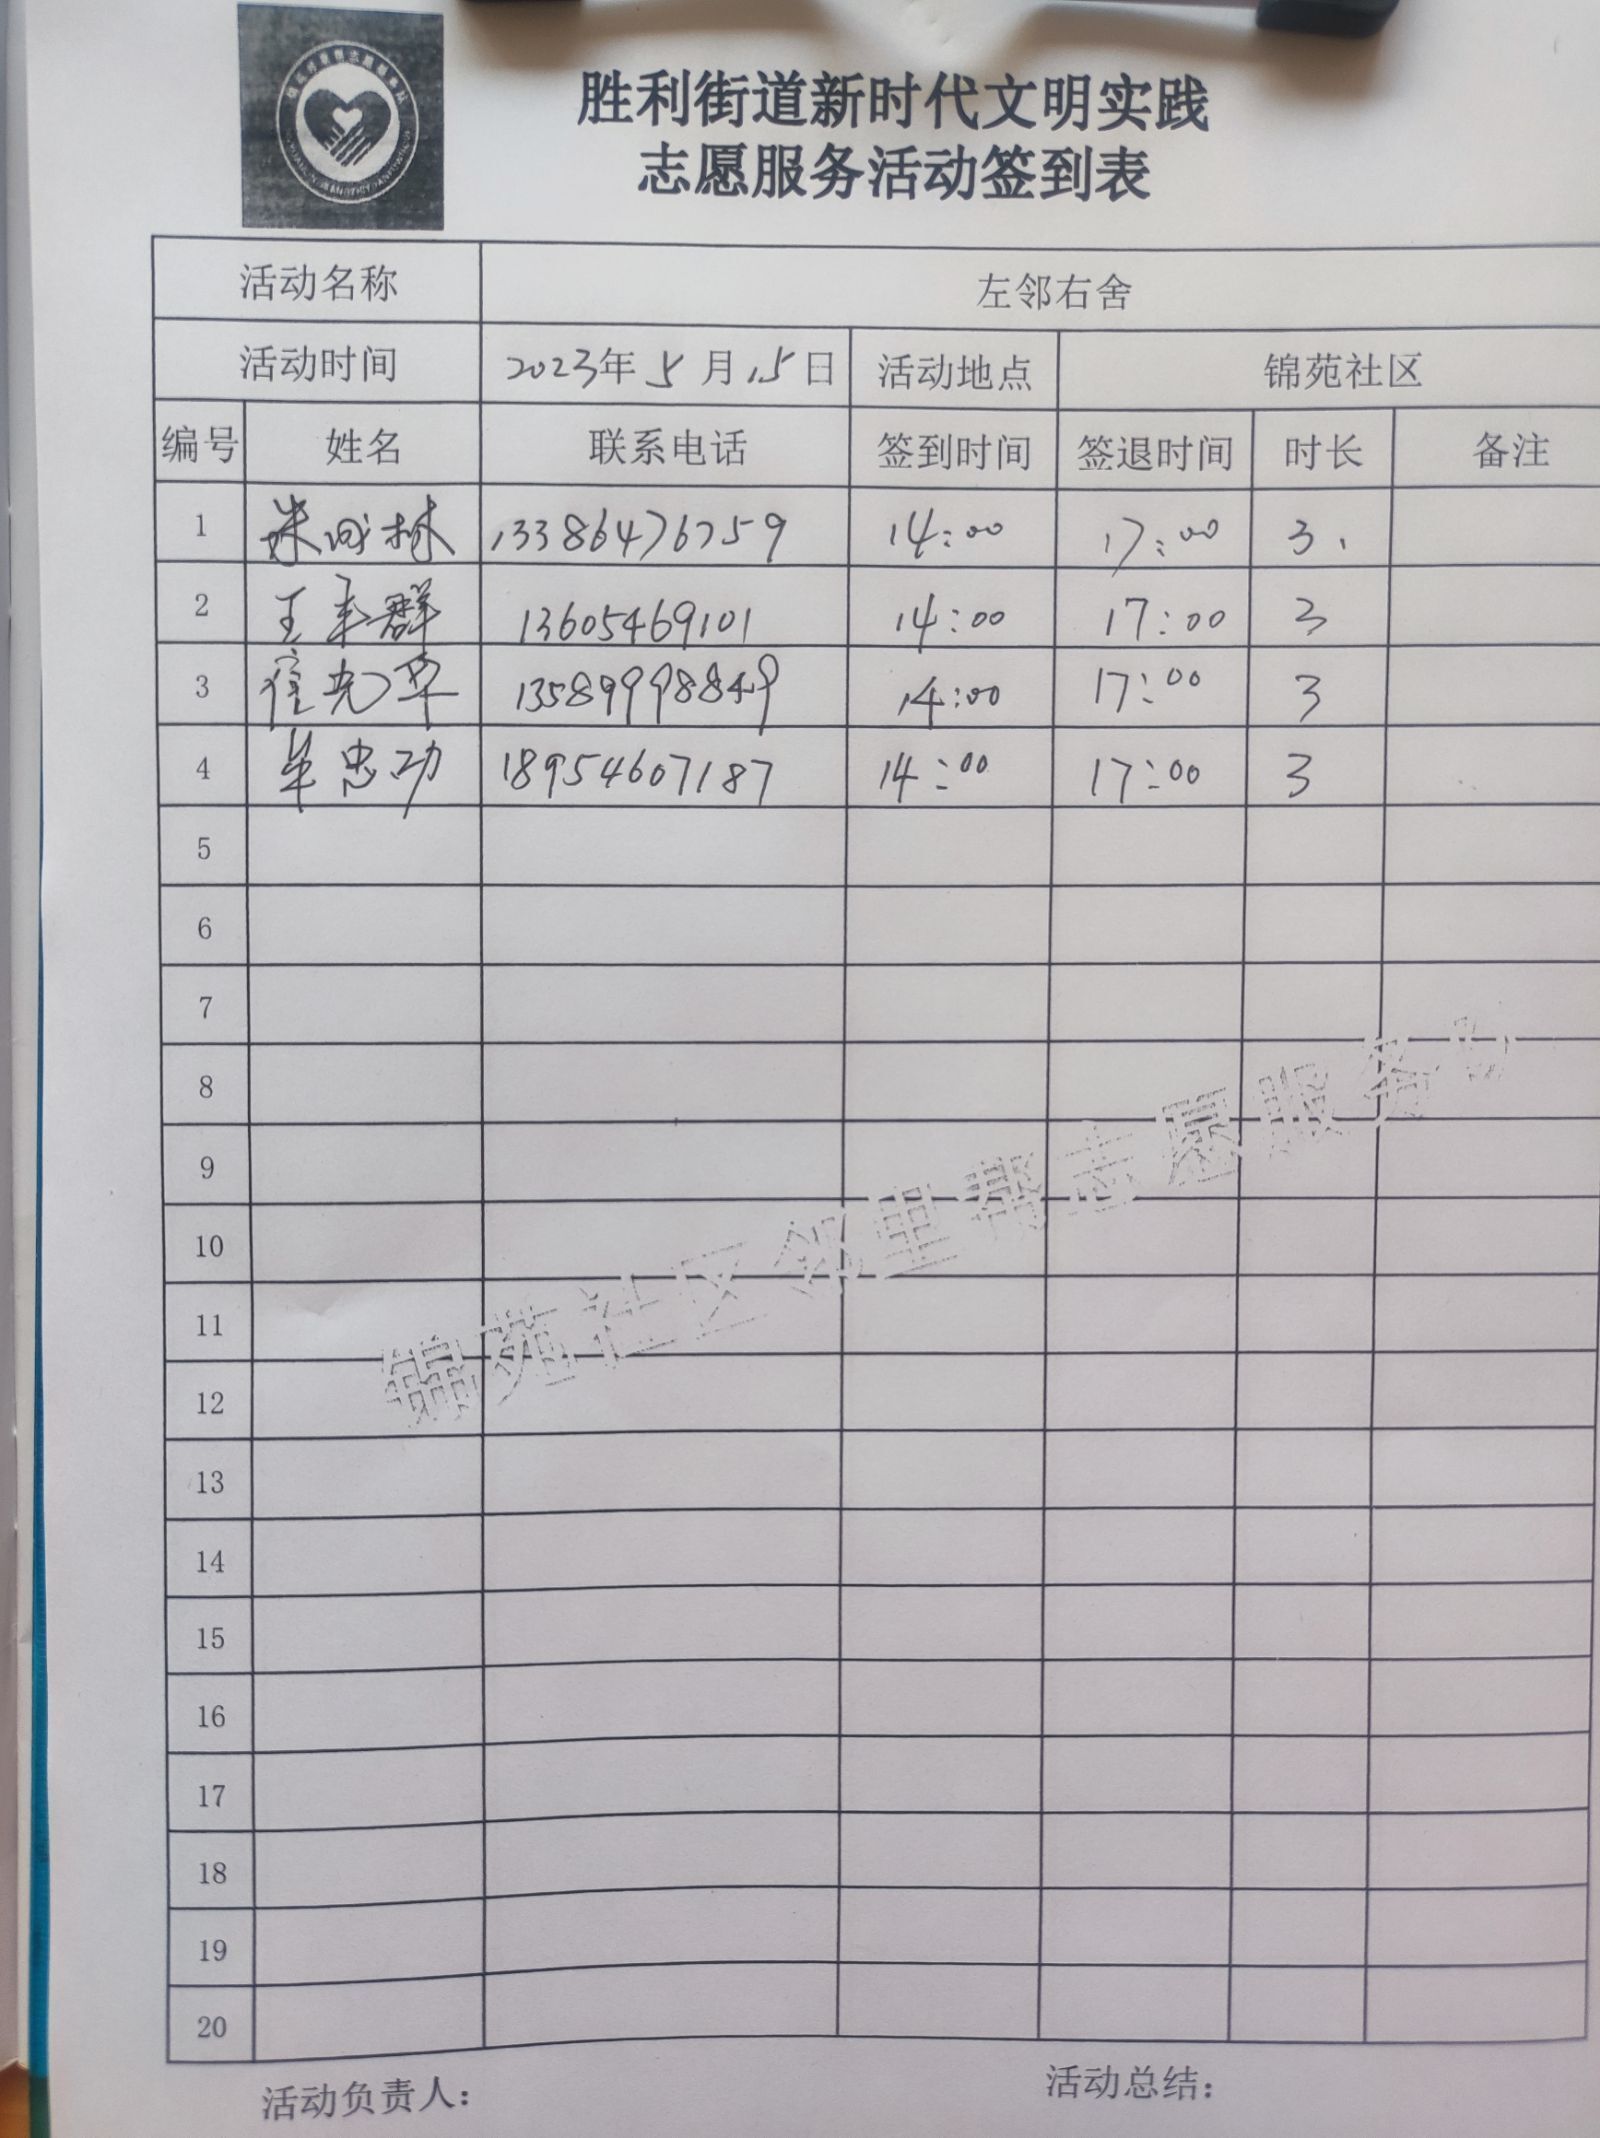 胜利街道新时代文明实践
志愿服务活动签到表
活动名称 左邻右舍
活动时间 2023年 5 月 15 日 活动地点 锦苑社区
编号 姓名 联系电话 签到时间 签退时间 时长 备注
1 13386476759 14:00 17:00 3
2 王 群 13605469101 14:00 17:00 3
3 13589998849 14:00 17:00 3
4 忠功 18954607187 14:00 17:00 3
5
6
7
8
9
10
11
12
13
14
15
16
17
18
19
20
锦苑社区邻里帮志愿服务
活动负责人： 活动总结：